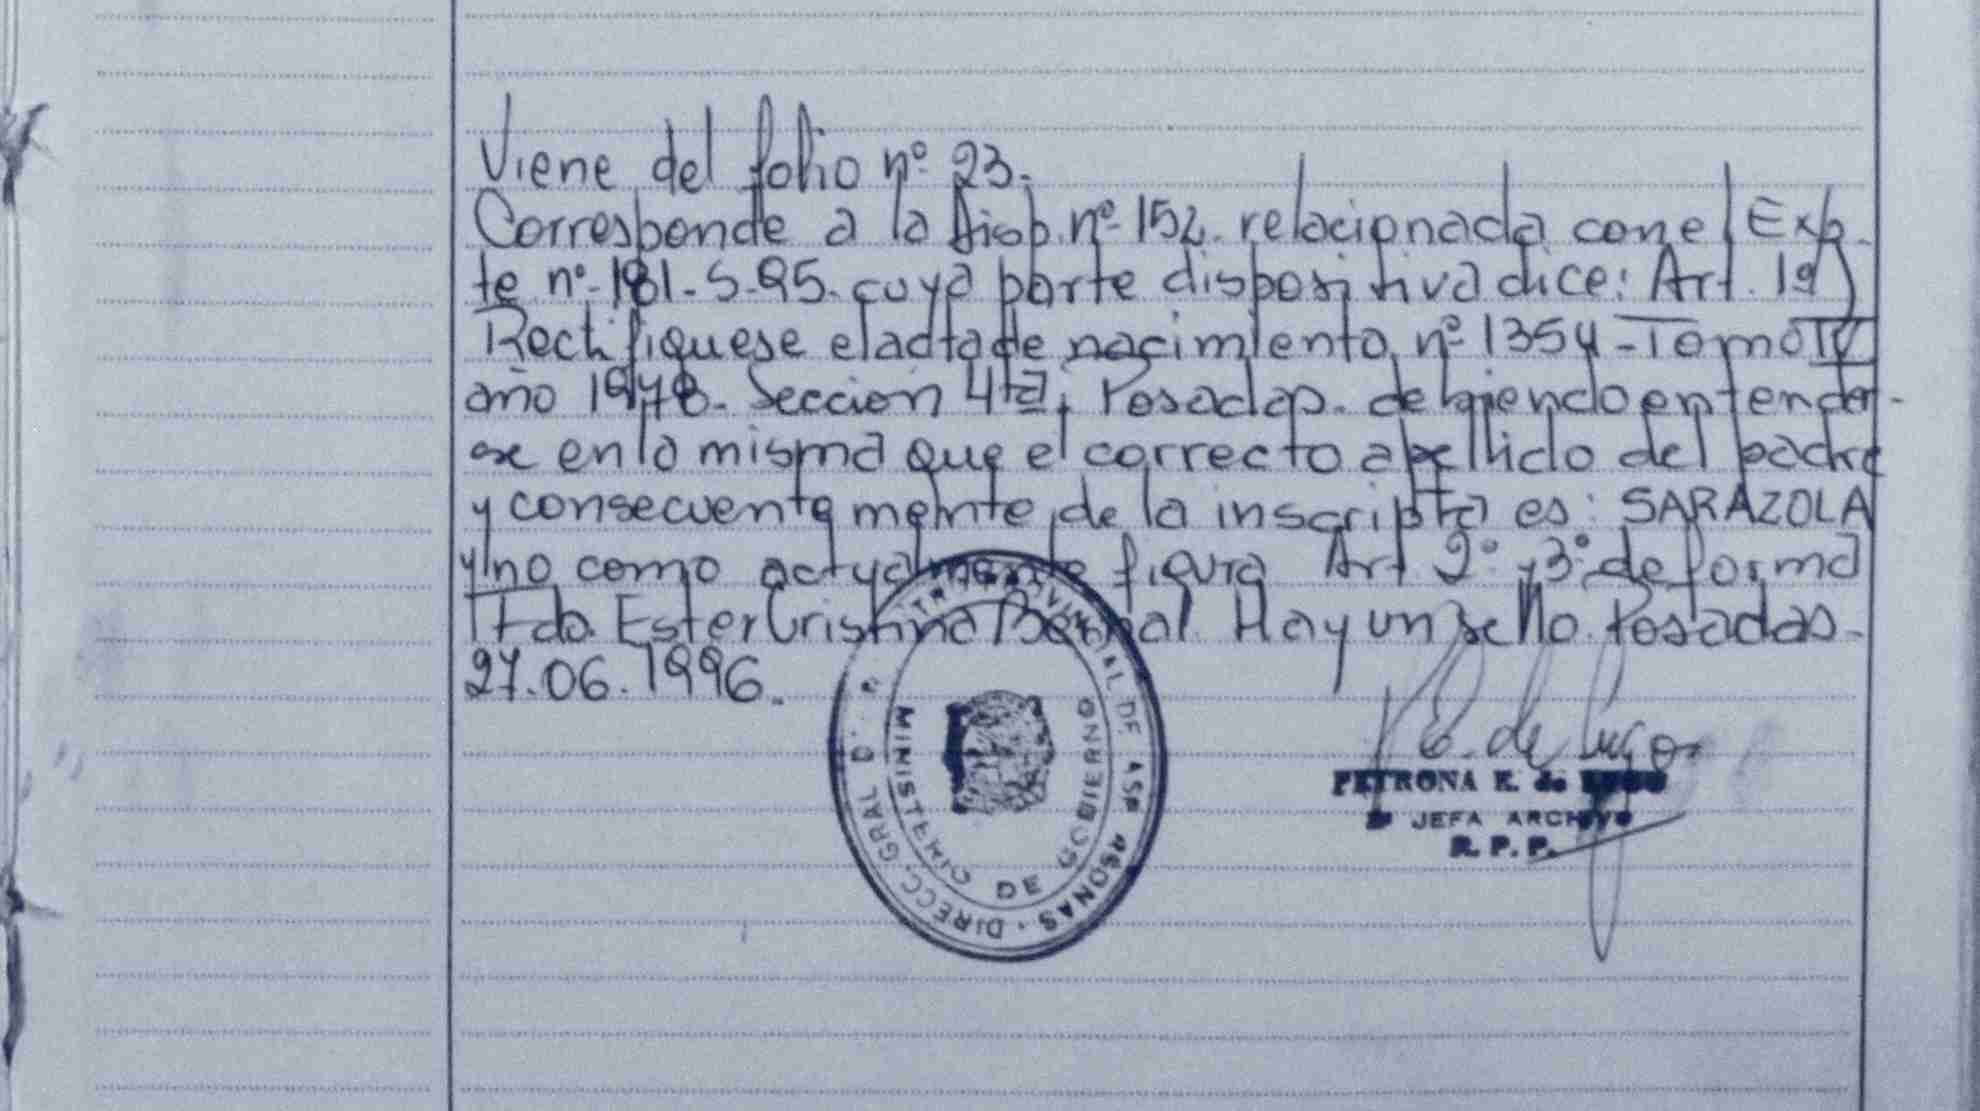 Viene del folio nº 23.
Corresponde a la Disp. nº 152. relacionada con el Exp.
te nº 181-S-95. cuya parte dispositiva dice: Art. 1º)
Rectifiquese el acta de nacimiento nº 1354 - Tomo IV
año 1978. Sección 4ta, Posadas. debiendo entender-
se en la misma que el correcto apellido del padre
y consecuentemente de la inscripta es: SARAZOLA
y no como actualmente figura Art 2º y 3º de forma
Fdo. Ester Cristina Bernal. Hay un sello. Posadas.
27.06.1996.
DIRECC. GRAL D. PROVINCIAL DE LAS PERSONAS
MINISTERIO DE GOBIERNO
E. de Lugo
PETRONA E. de LUGO
JEFA ARCHIVO
R. P. P.